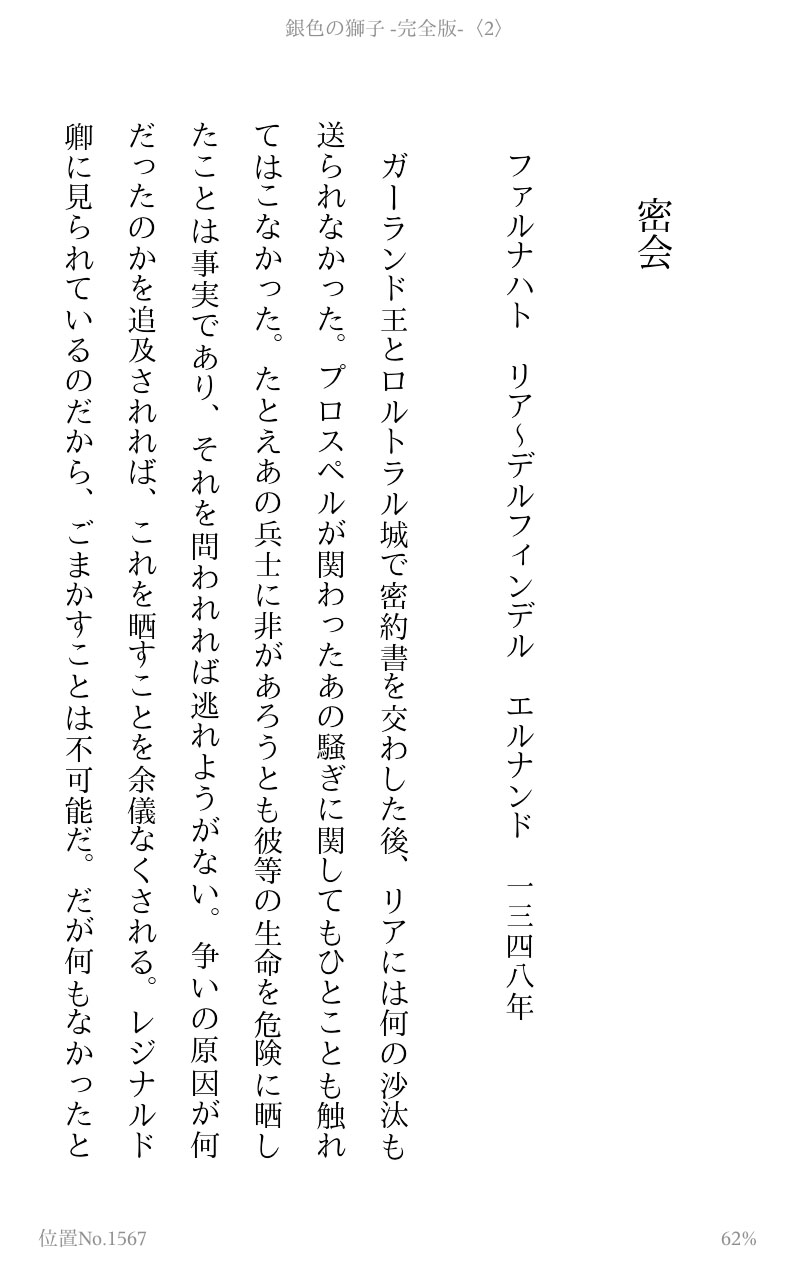 銀色の獅子 -完全版-〈2〉
密会
ファルナハト　リア～デルフィンデル　エルナンド　一三四八年
ガーランド王とロルトラル城で密約書を交わした後、リアには何の沙汰も
送られなかった。プロスペルが関わったあの騒ぎに関してもひとことも触れ
てはこなかった。たとえあの兵士に非があろうとも彼等の生命を危険に晒し
たことは事実であり、それを問われれば逃れようがない。争いの原因が何
だったのかを追及されれば、これを晒すことを余儀なくされる。レジナルド
卿に見られているのだから、ごまかすことは不可能だ。だが何もなかったと
位置No.1567
62%